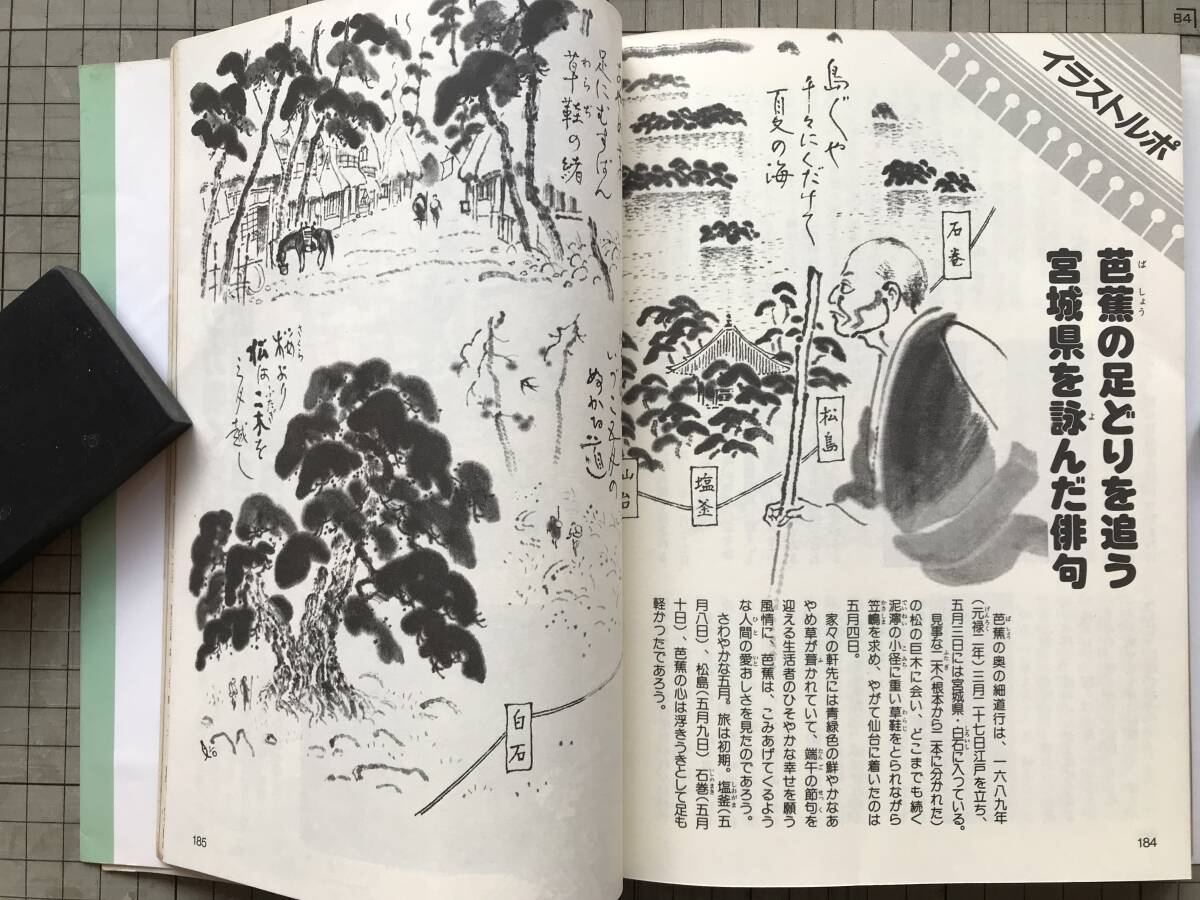 B4
イラストルポ
芭蕉の足どりを追う
ばしょう
宮城県を詠んだ俳句
よ
島ぐや
千々にくだけて
夏の海
石巻
松島
塩釜
仙台
芭蕉の奥の細道行は、一六八九年
(元禄二年)三月二十七日江戸を立ち、
五月三日には宮城県・白石に入っている。
見事な二木(根本から二本に分かれた)
の松の巨木に会い、どこまでも続く
泥濘の小径に重い草鞋をとられながら
笠嶋を求め、やがて仙台に着いたのは
五月四日。
家々の軒先には青緑色の鮮やかなあ
やめ草が葺かれていて、端午の節句を
迎える生活者のひそやかな幸せを願う
風情に、芭蕉は、こみあげてくるよう
な人間の愛おしさを見たのであろう。
さわやかな五月。旅は初期。塩釜(五
月八日)、松島(五月九日)石巻(五月
十日)、芭蕉の心は浮きうきとして足も
軽かったであろう。
184
足にむすばん
草鞋の緒
わらぢ
いづこ五月の
ぬかる道
桜より
さくら
松は二木を
三月越し
白石
185